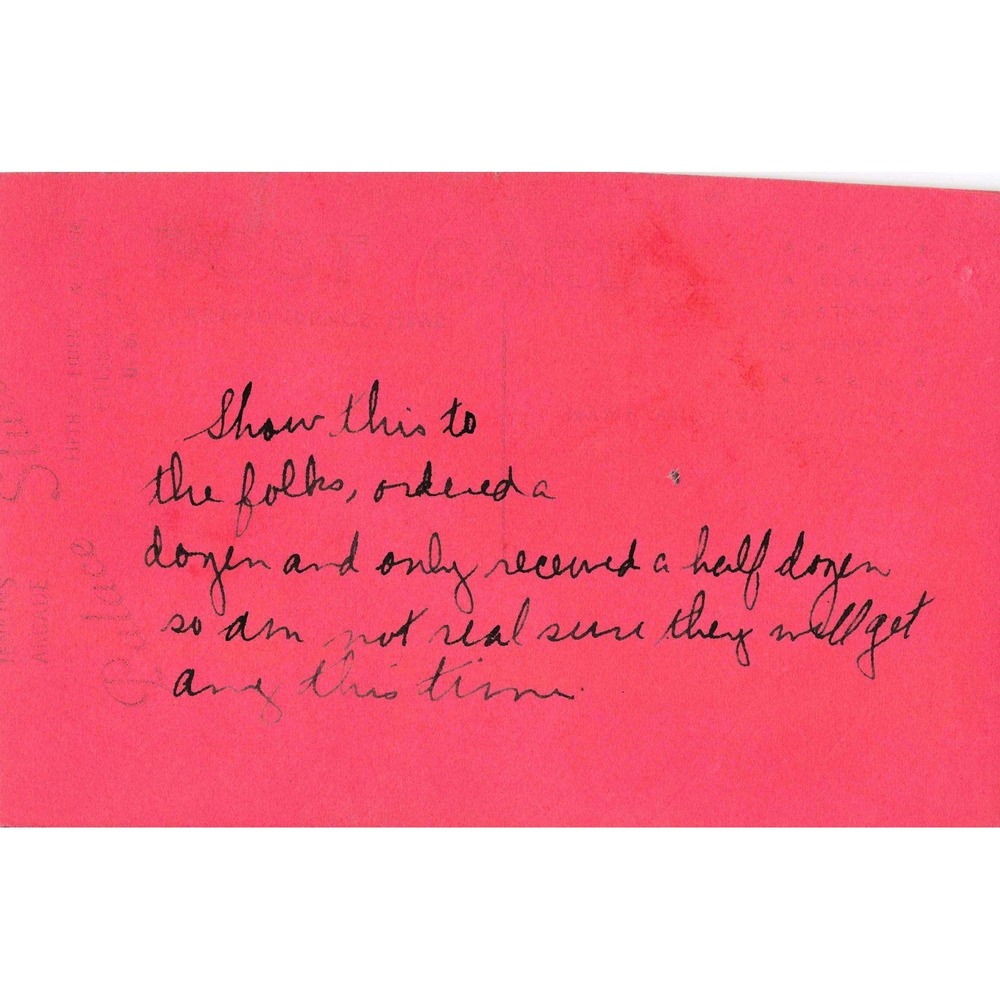 Show this to
the folks, ordered a
dozen and only received a half dozen
so am not real sure they will get
any this time.